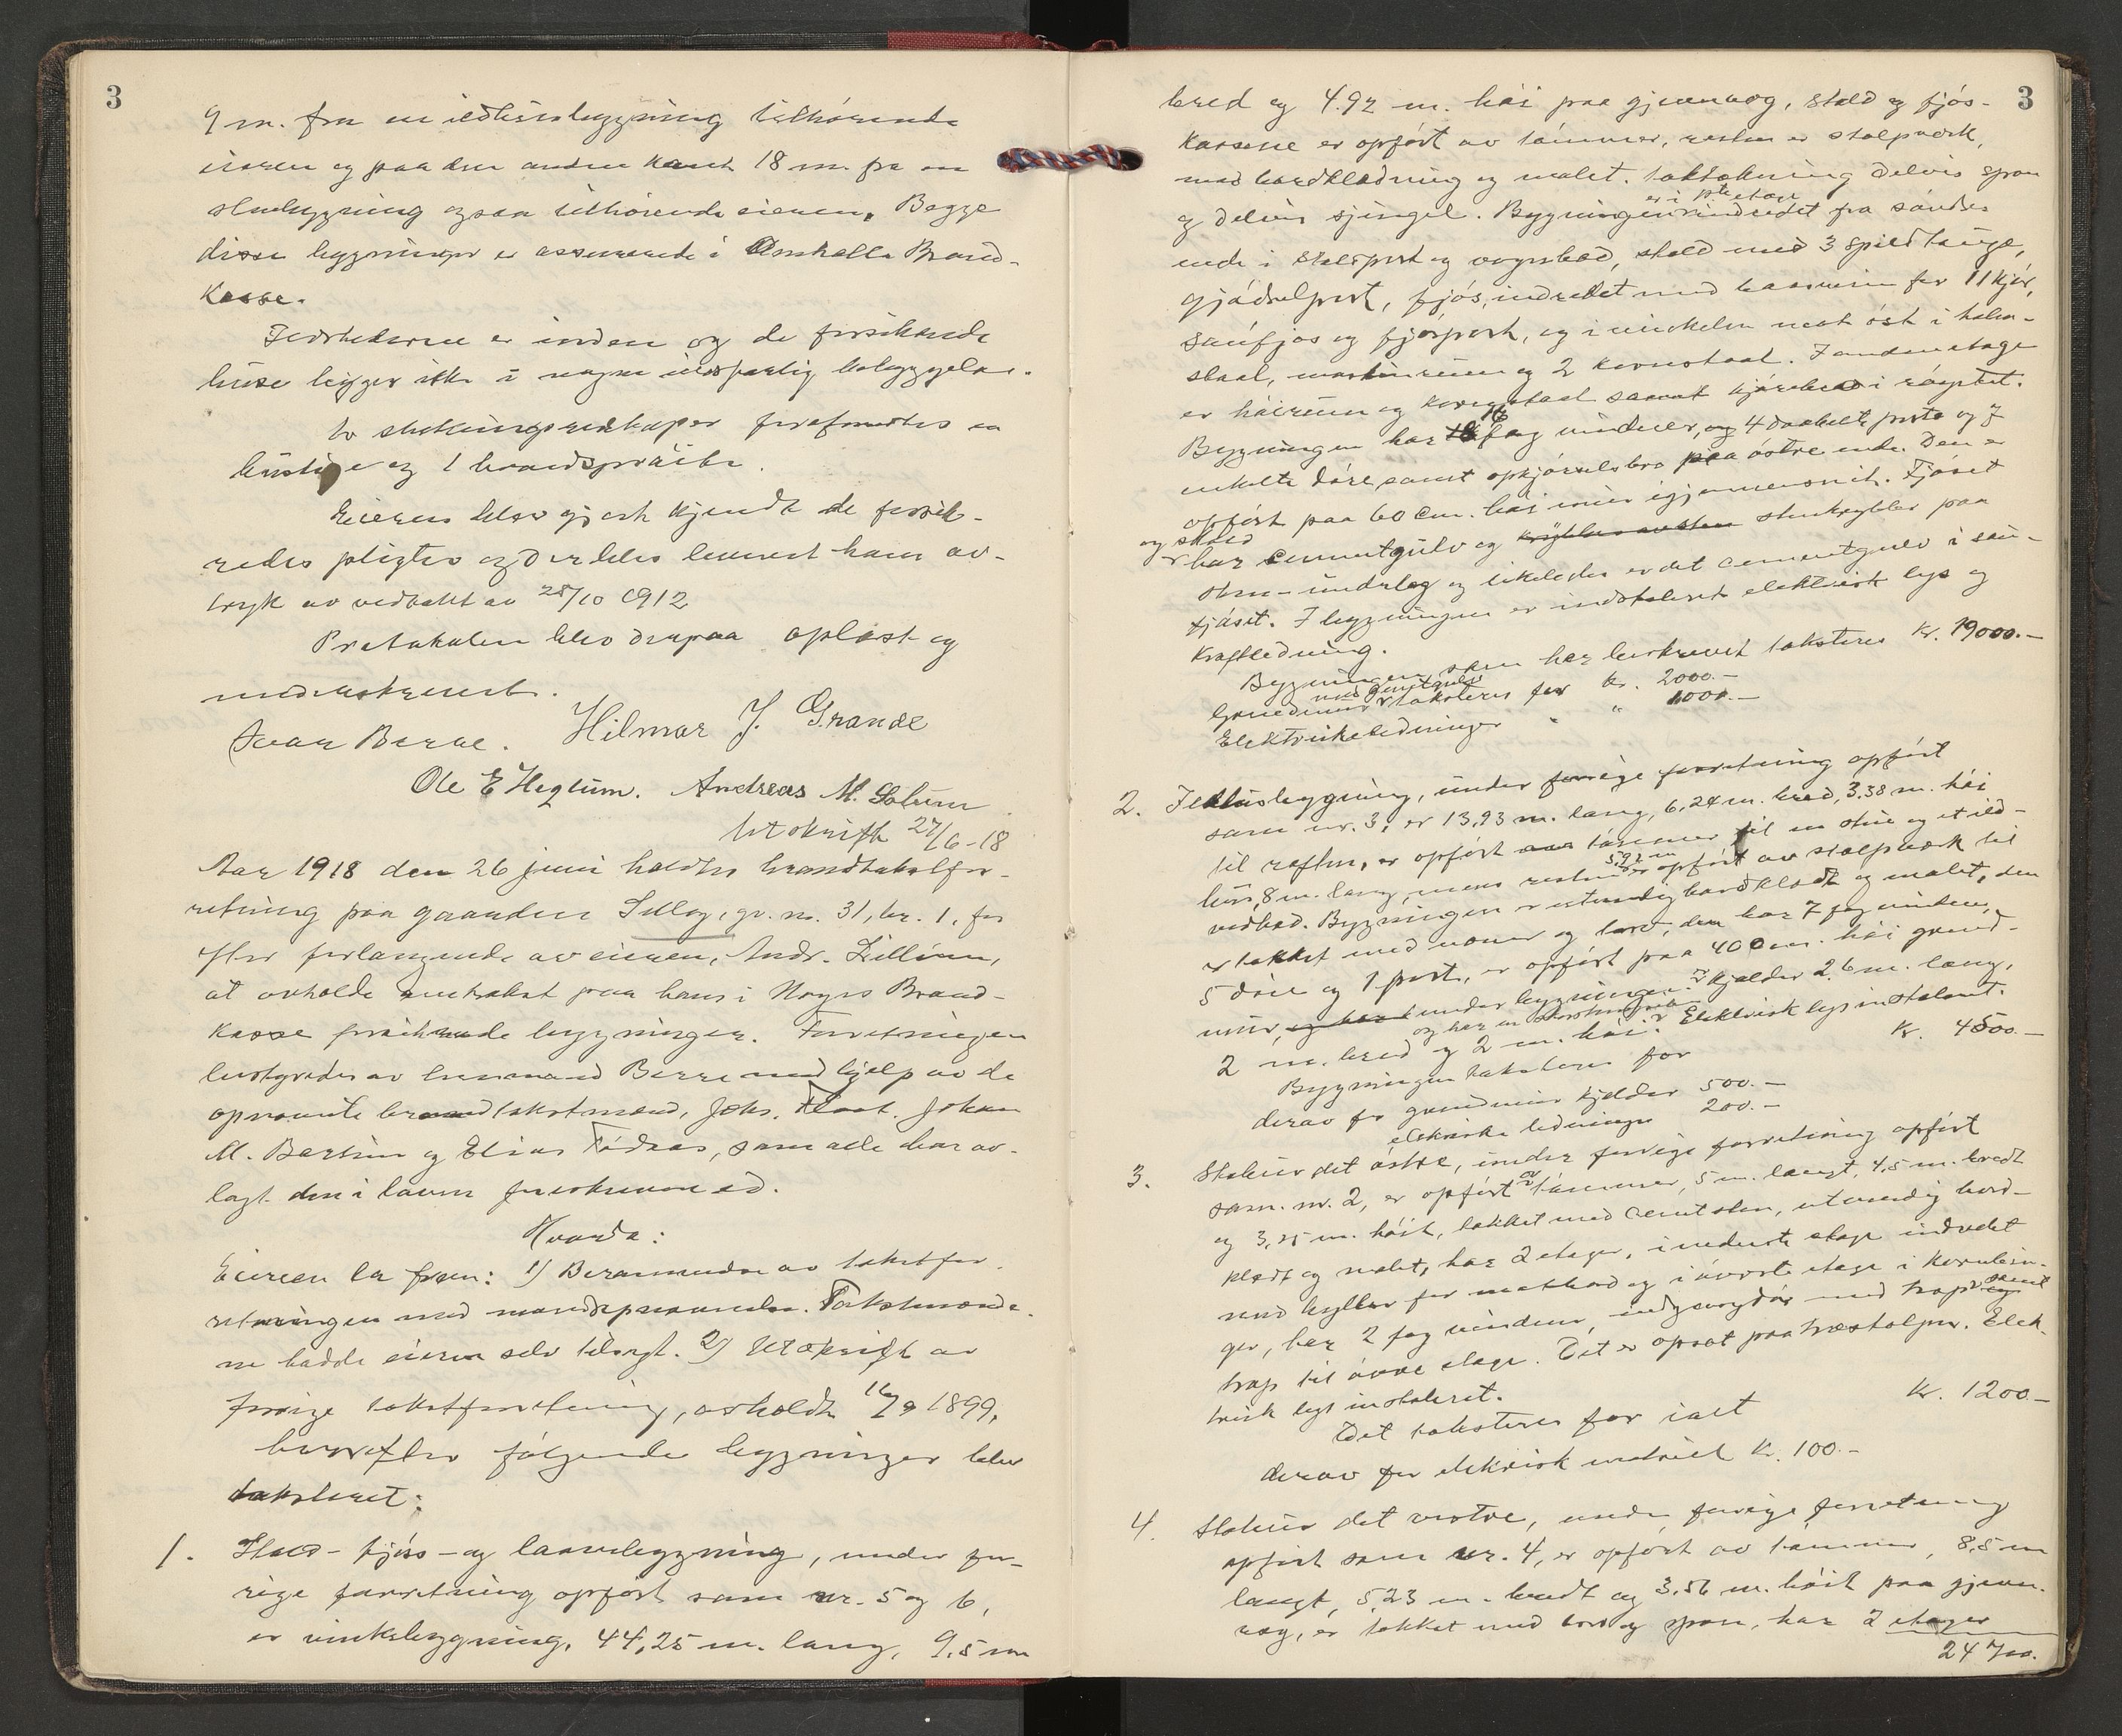 3
9 m. fra en ildhusbygning tilhørende
eieren og paa den anden kant 18 m. fra en
stubygning ogsaa tilhørende eieren. Begge
disse bygninger er assurerede i Brand-
kasse.
Ildstederne er inden og de forsikrede
huse ligger ikke i nogen uforsvarlig bebyggelse.
Av slukningsredskaper forefandtes en
hustige og 1 brandsprøite.
Eieren blev gjort kjendt de forsik-
redes pligter og der blev leveret ham av-
tryk av vedtekt av 25/10 1912
Protokolen blev derpaa oplæst og
underskrevet.
Ivar Berre. Hilmar J. Grande
Ole E Heglum. Andreas M. Solum
Utskrift 27/6-18
Aar 1918 den 26 juni holdtes brandtakstfor-
retning paa gaarden , gr. nr. 31, br. 1, for
efter forlangende av eieren, Andr. ,
at avholde omtakst paa hans i Norges Brand-
kasse forsikrede bygninger. Forretningen
bestyredes av lensmand Berre med hjelp av de
opnævnte brandtakstmænd, Johs. , Johan
M. Bertum og Elias , som alle har av-
lagt den i loven foreskrevne ed.
Hvorda:
Eieren la frem: 1) Berammelse av takstfor-
retningen med mandsopnævnelse. Takstmænde-
ne hadde eieren selv tilsagt. 2) Utskrift av
forrige takstforretning, avholdt 1899,
hvorefter følgende bygninger blev
taksteret:
1. Stald- fjøs- og laavebygning, under for-
rige forretning opført som nr. 5 og 6,
er vinkelbygning, 44,25 m. lang, 9,5 m
3
bred og 4.92 m. høi paa gjennevæg, stald og fjøs-
kassene er opført av tømmer, resten er stolpverk,
med bordklædning og malet. taktækning delvis spon
er i 1ste etage
og delvis sjingel. Bygningen indredet fra søndre
ende i staldport og vognbod, stald med 3 spiltauge,
gjødselport, fjøs, indredet med baasrum for 11 kjør,
saufjøs og fjøsport, og i vinkelen mot øst i halm-
staal, maskinrum og 2 kornstaal. I anden etage
er høirum og kornstaal samt kjørebro i røstet.
Bygningen har 16 fag vinduer, og 4 dobbelte porte og 7
enkelte døre samt opkjørselsbro paa østre ende. Den er
opført paa 60 cm. høi mur igjennemsnit. Fjøset
og stald
har cementgulv og krybber av sten stenkrybber paa
sten-underlag og likeledes er det cementgulv i sau-
fjøset. I bygningen er indstaleret elektrisk lys og
kraftledning.
Bygningen som her beskrevet taksteres Kr. 19000.-
med cementgulv
Grundmur taksteres for kr. 2000.-
Elektriske ledninger " " 1000.-
2. Ildhusbygning, under forrige forretning opført
som nr. 3, er 13,93 m. lang, 6,24 m. bred, 3.38 m. høi
til raften, er opført av tømmer til en stue og et ild-
5,92 m
hus, 8 m. lang, mens resten er opført av stolpverk til
vedbod. Bygningen er utvendig bordklædt og malet, den
er takket med never og torv, den har 7 fag vinduer,
5 døre og 1 port, er opført paa 40 cm. høi grund-
mur, og har under bygningen kjelder 2.6 m. lang,
og har en skorstenspibe
2 m. bred og 2 m. høi. Elektrisk lys instaleret.
Bygningen taksteres for Kr. 4500.-
derav for grundmur kjelder 500.-
elektriske ledninger 200.-
3. Stabur det østre, under forrige forretning opført
som nr. 2, er opført av tømmer, 5 m. langt, 4,5 m. bredt
og 3,25 m. høit, takket med cementsten, utvendig bord-
klædt og malet, har 2 etager, i nederste etage indredet
med hylder for matbod og i øverste etage i kornbin-
ger, har 2 fag vinduer, indgangsdør med trap samt
trap til øvre etage. Det er opsat paa træstolper. Elek-
trisk lys instaleret.
Det taksteres for ialt Kr. 1200-
derav for elektrisk matriel Kr. 100.-
4. Stabur det vestre, under forrige forretning
opført som nr. 4, er opført av tømmer, 8,5 m
langt, 5,23 m. bredt og 3,56 m. høit paa gjenne-
væg, er takket med torv og spon, har 2 etager
24 700.